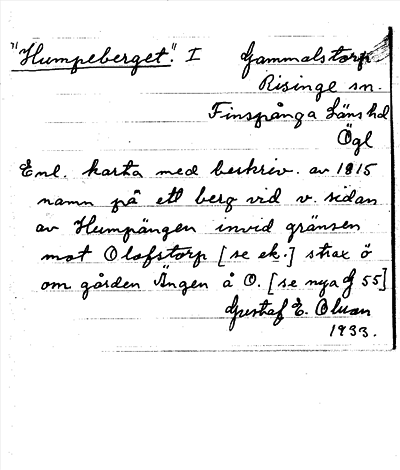 "Humpeberget". I Gammalstorp
Risinge sn.
Finspånga Läns hd
Ögl
Enl. karta med beskriv. av 1815
namn på ett berg vid v. sidan
av Humpängen invid gränsen
mot Olofstorp [se ek.] strax ö
om gården Ängen å O. [se nya G 55]
Gustaf E. Olsson
1933.